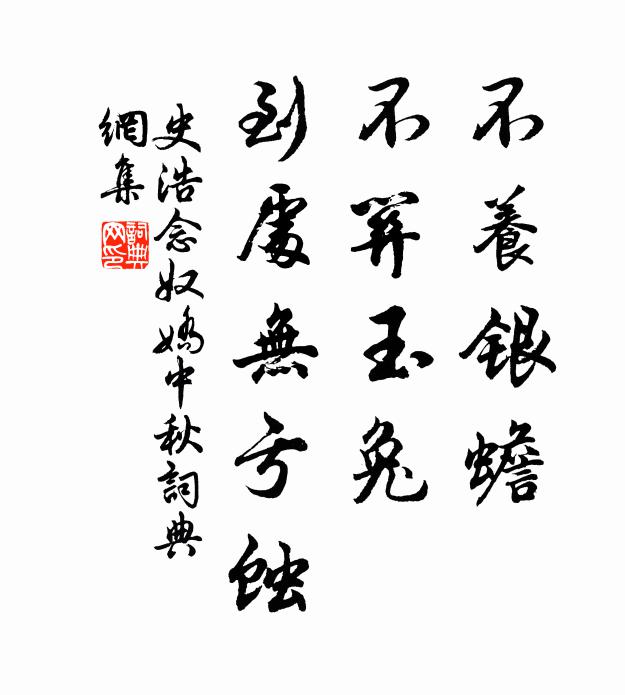 不養銀蟾
不玉兔
到處無亏蝕
史浩念奴嬌中秋詞典
網集
詞典
网印